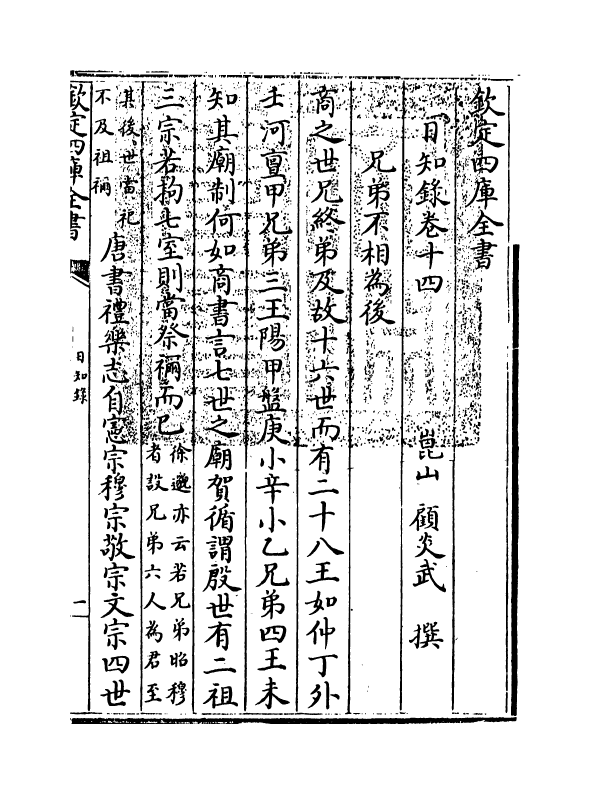 欽定四庫全書
日知錄卷十四
崑山 顧炎武 撰
兄弟不相為後
商之世兄終弟及故十六世而有二十八王如仲丁外
壬河亶甲兄弟三王陽甲盤庚小辛小乙兄弟四王未
知其廟制何如商書言七世之廟賀循謂殷世有二祖
三宗若拘七室則當祭禰而已徐邈亦云若兄弟昭穆
者設兄弟六人為君至
其後世當祀
不及祖禰
唐書禮樂志自憲宗穆宗敬宗文宗四世
欽定四庫全書
日知錄
一